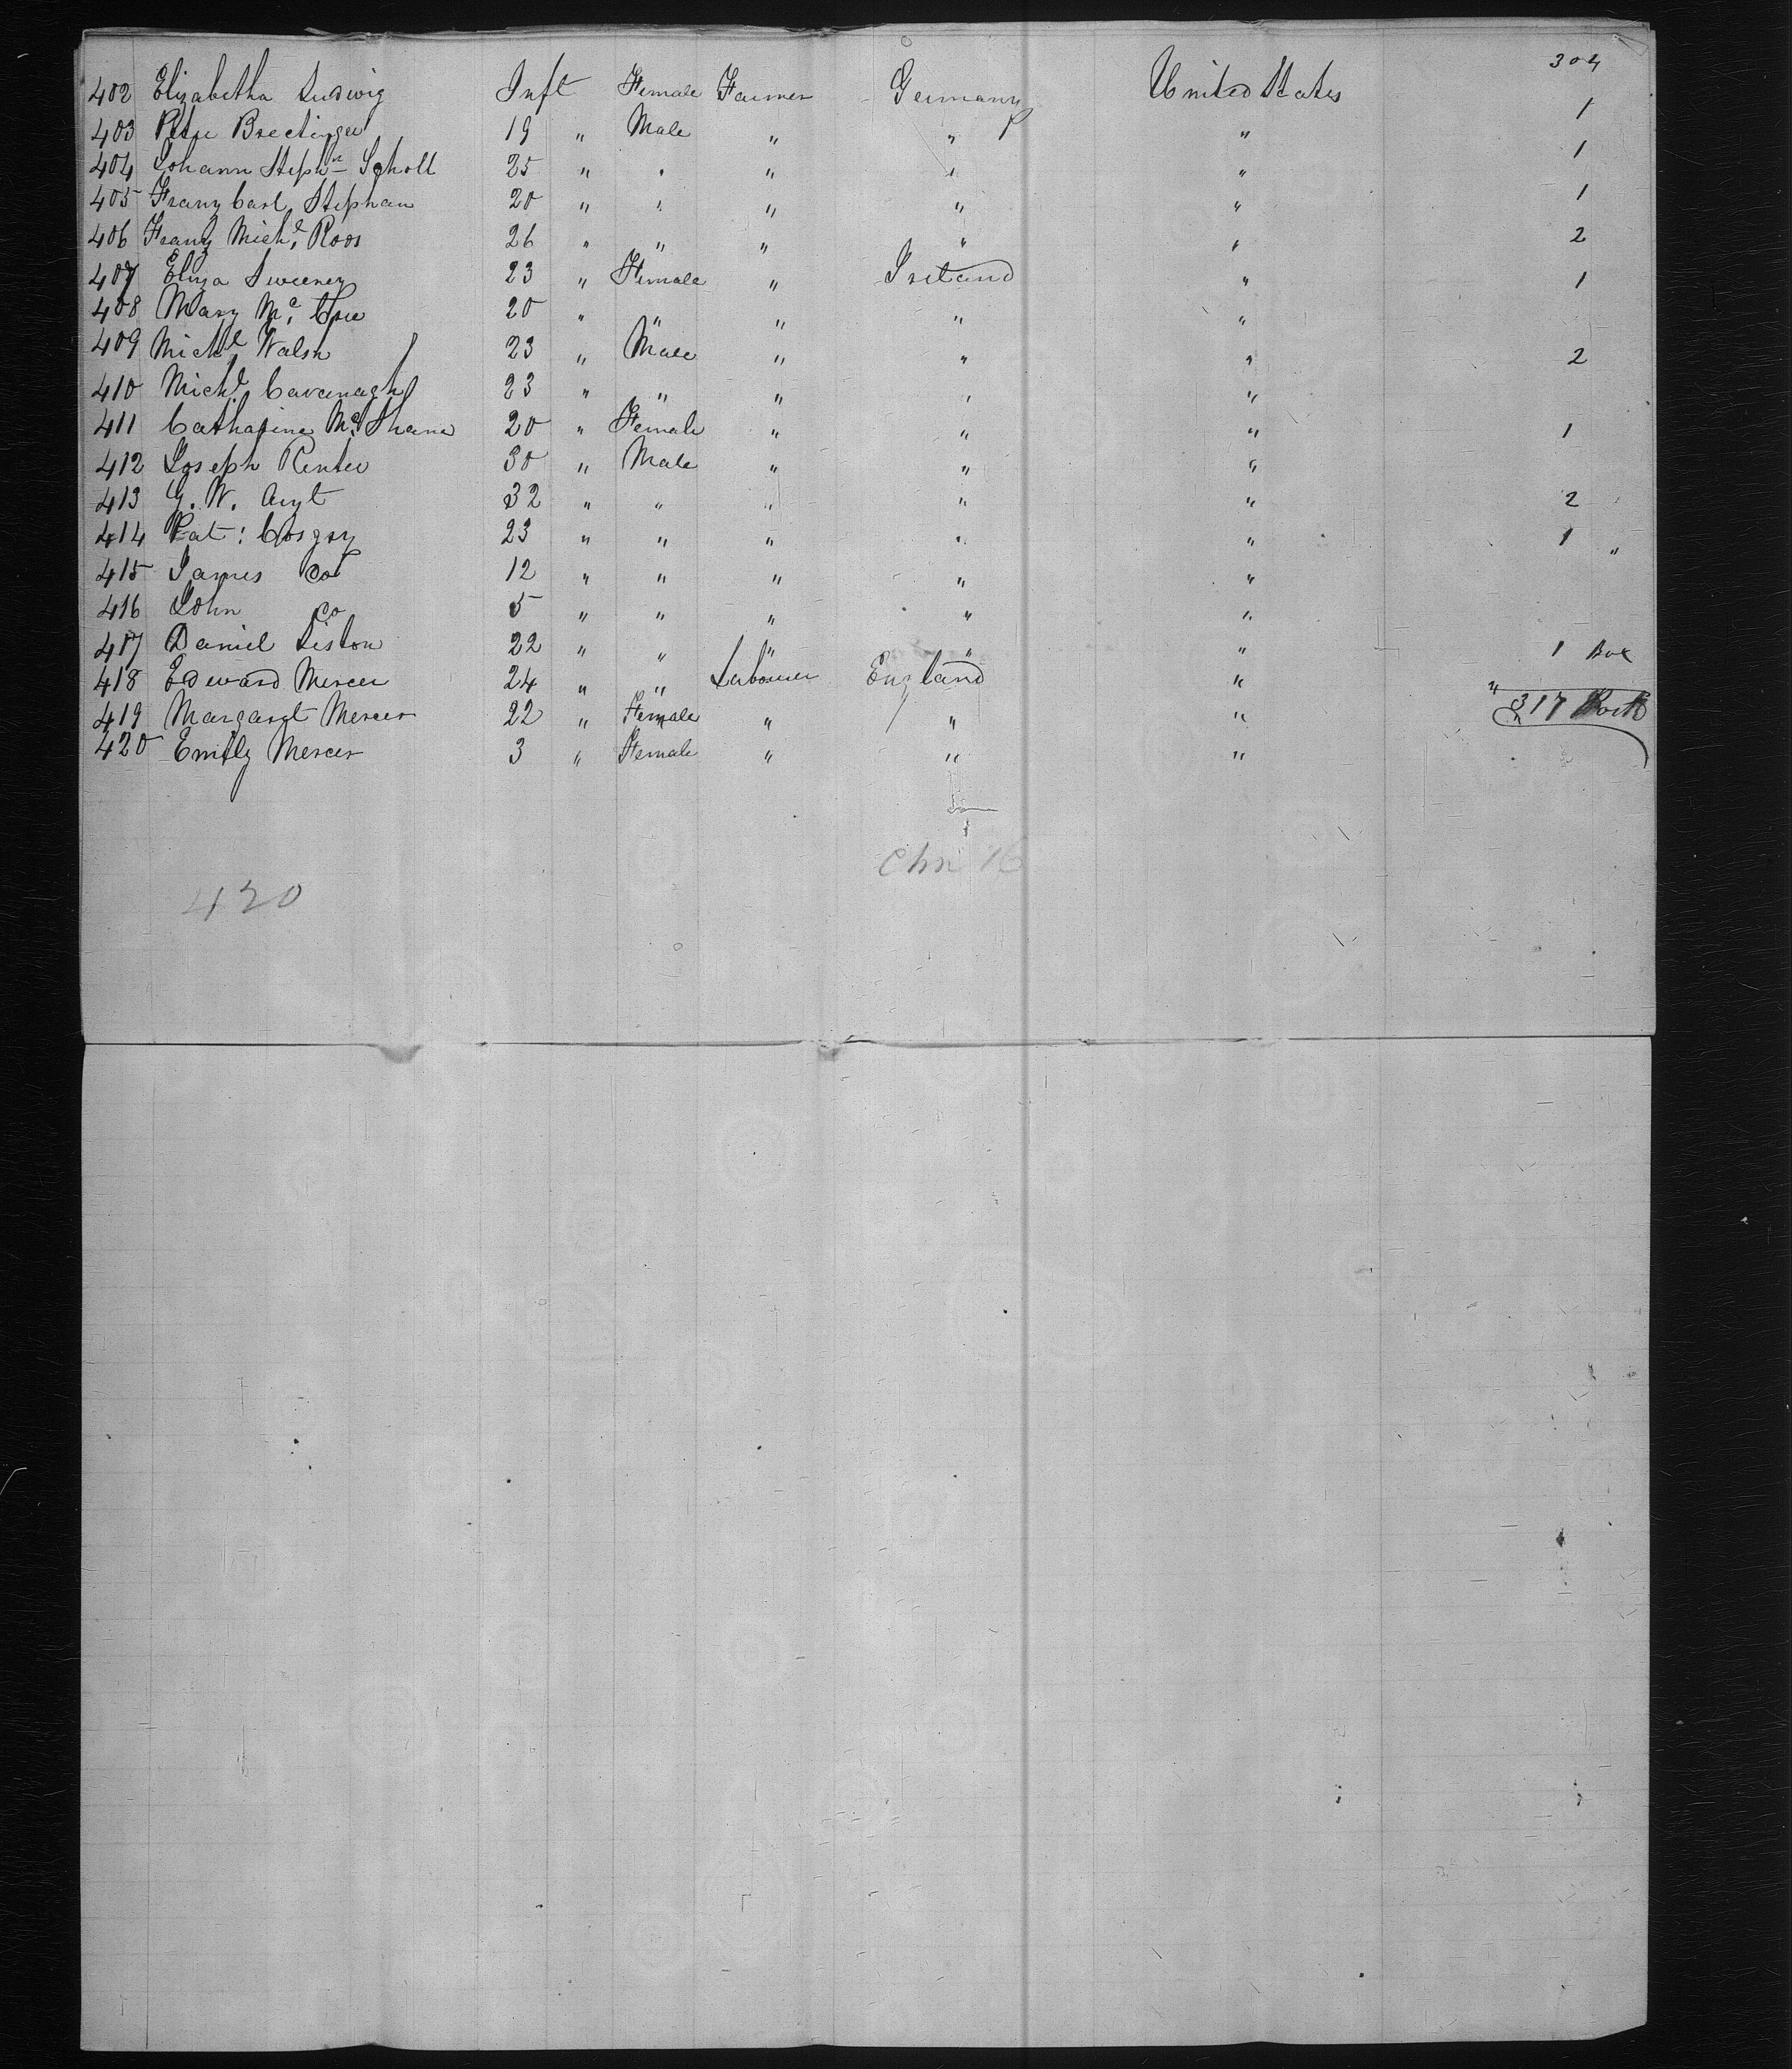 304
402 Elizabetha Ludwig Inft Female Farmer Germany United States 1
403 Peter Brectinger 19 " Male " " "
404 Johann Steph.n Scholl 25 " " " " " 1
405 Franz Carl Stephan 20 " " " " " 1
406 Franz Mich.l Roos 26 " " " " " 2
407 Eliza Sweeney 23 " Female " Ireland " 1
408 Mary Mc. 20 " " " " "
409 Mich.l Walsh 23 " Male " " " 2
410 Mich.l Cavanagh 23 " " " " "
411 Catharine Mc. Shane 20 " Female " " " 1
412 Joseph Renter 30 " Male " " "
413 G. W. 32 " " " " " 2
414 Pat: Cosgry 23 " " " " " 1 "
415 James Do 12 " " " " "
416 John Do 5 " " " " "
417 Daniel Liston 22 " " " " " 1 Box
418 Edward Mercer 24 " " Labourer England " "
419 Margaret Mercer 22 " Female " " " 317
420 Emily Mercer 3 " Female " " "
Chn 16
420